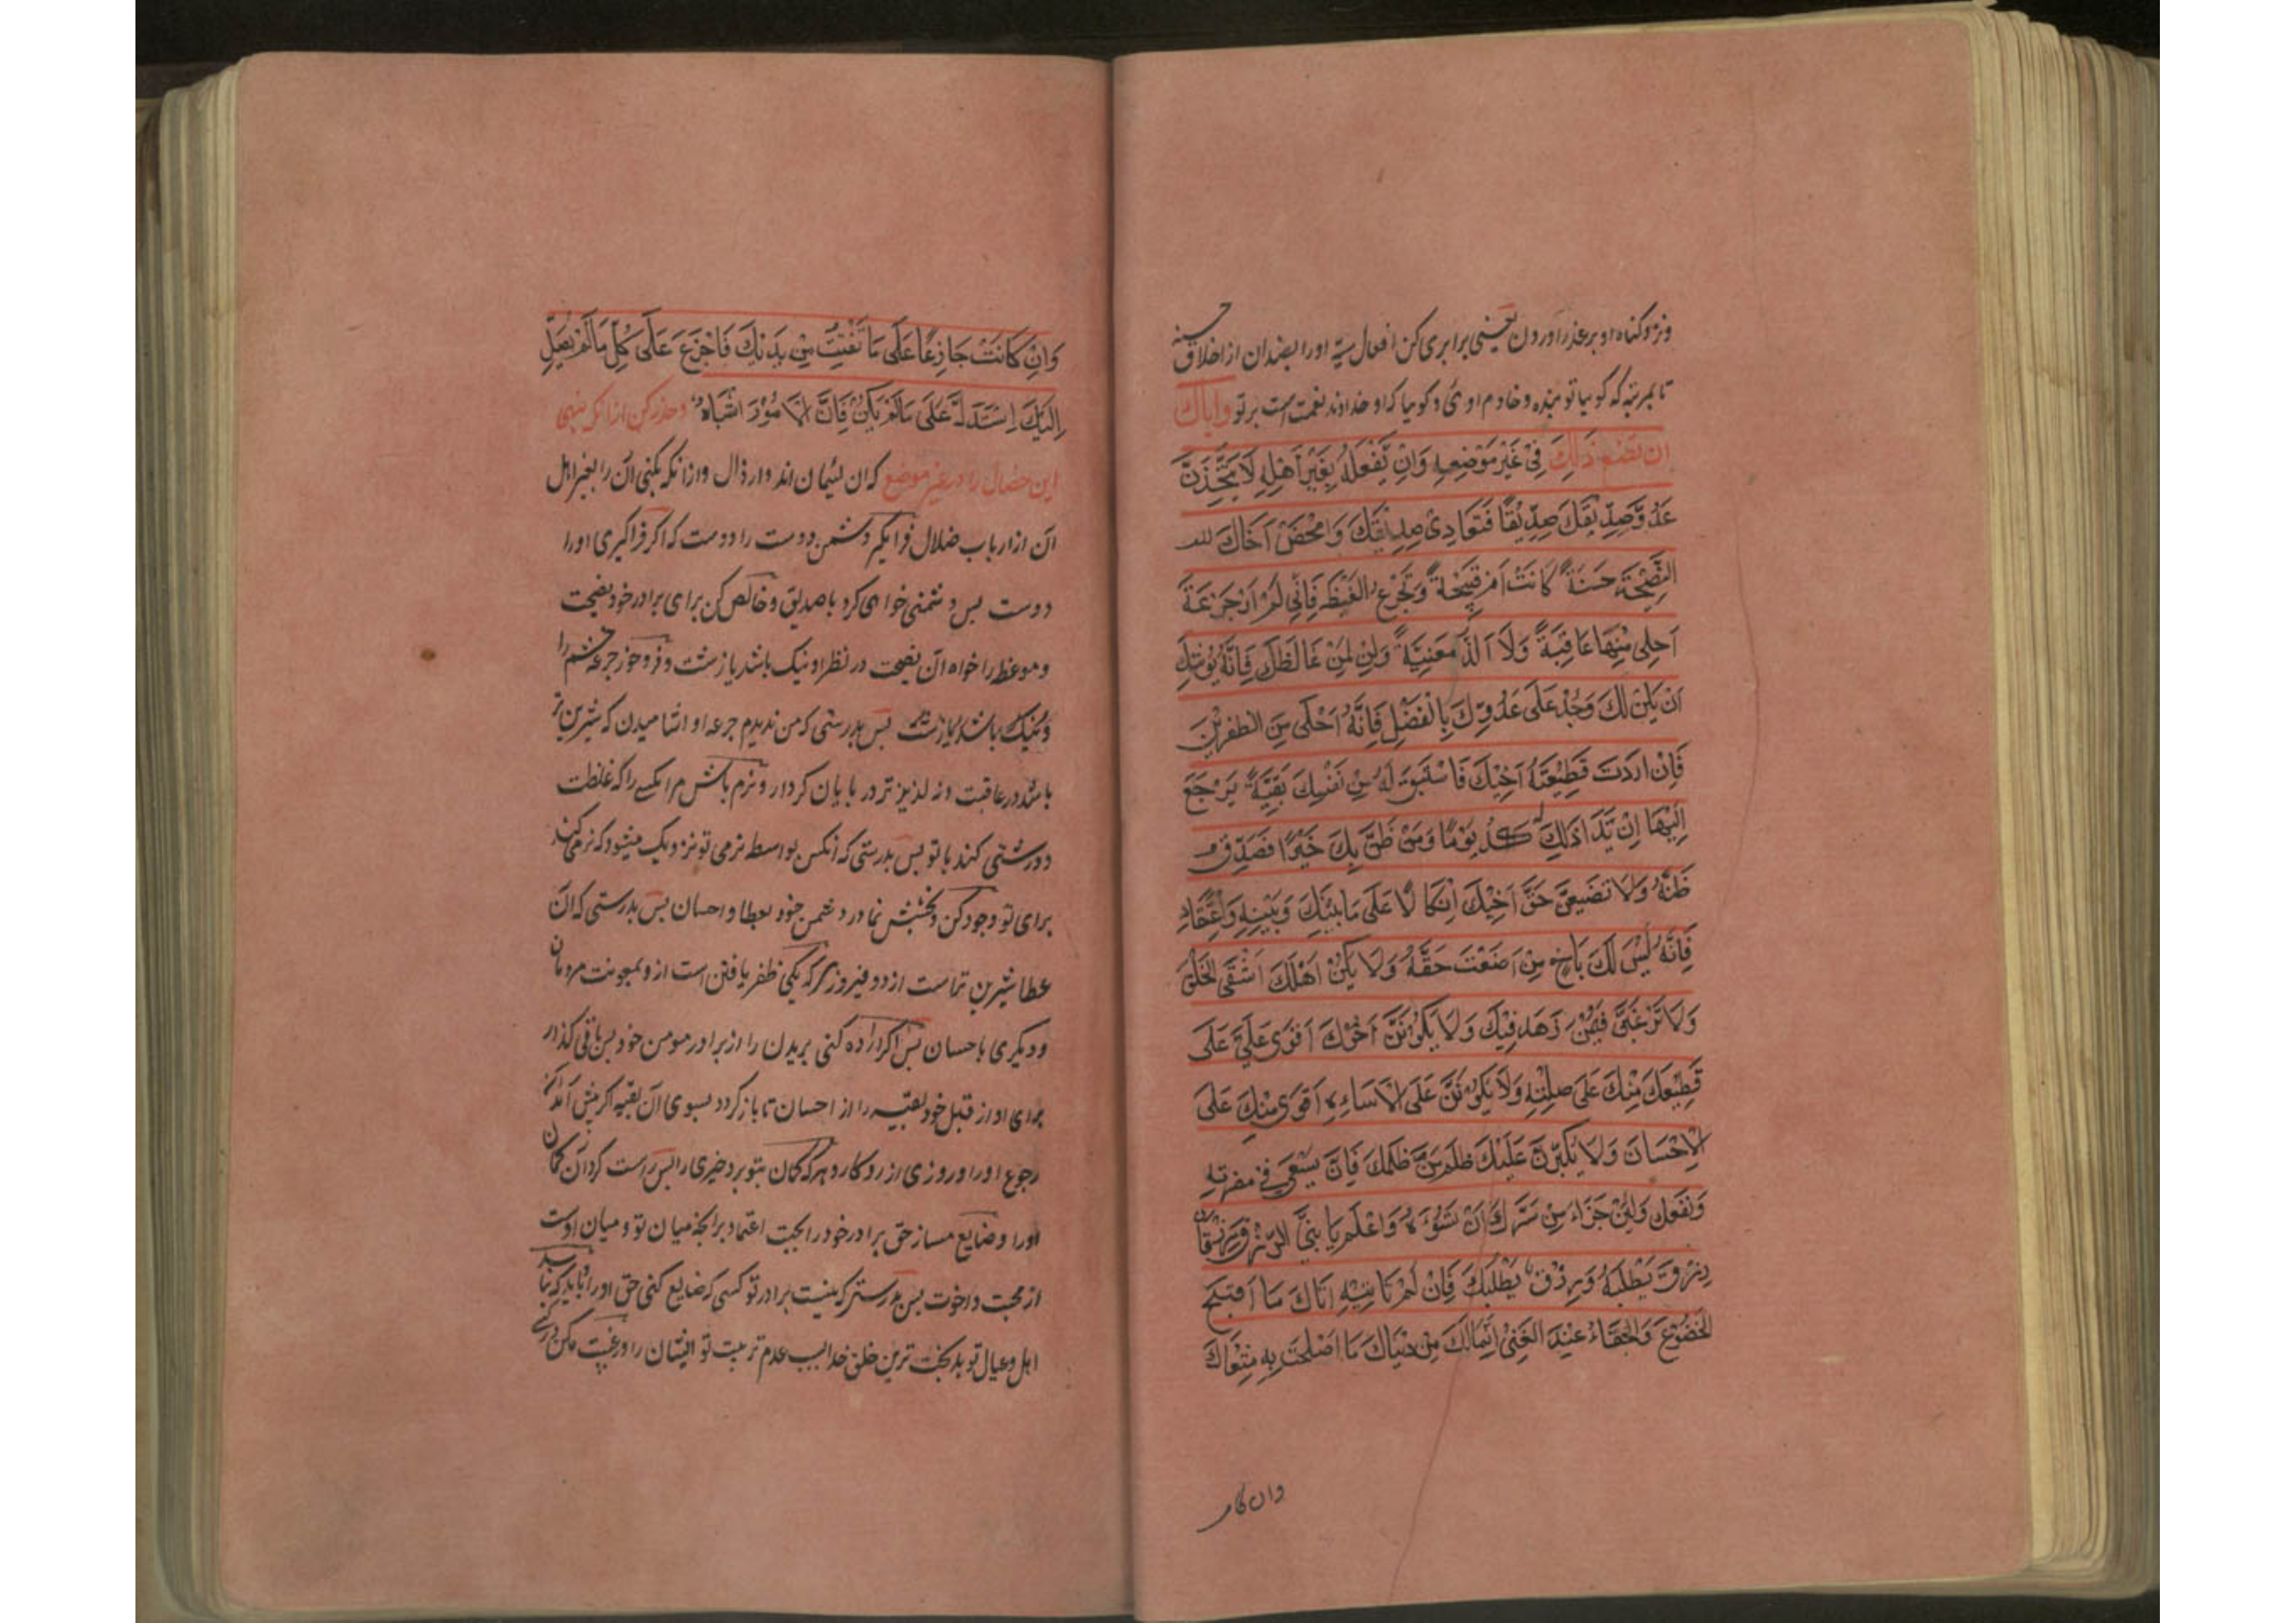 ونزد گناه او بر عذر اوردن یعنی برابری کن افعال سیه اورا بضد ان از اخلاق حسنه
تا بمرتبه که گوییا تو بنده و خادم اوئی و گوییا که او خداوند نعمت است بر تو وایاک
ان تضع ذلك فِیْ غَیْرِ مَوْضِعِهِ وَاَنْ تَفْعَلَهُ بِغَیْرِ اَهْلِهِ لَا تَتَّخِذَنَّ
عَدُوَّ صِدِّیْقِكَ صِدِّیْقًا فَتَعَادِیْ صِدِیْقَكَ وَامْحَضْ اَخَاكَ
النَّصِیْحَةَ حَسَنَةً كَانَتْ اَمْ قَبِیْحَةً وَتَجَرَّعِ الْغَیْظَ فَاِنِّیْ لَمْ اَرَ جَرْعَةً
اَحْلٰی مِنْهَا عَاقِبَةً وَلَا اَلَذَّ مَعَنِیَّةً وَلِنْ لِمَنْ غَالَظَكَ فَاِنَّهُ یُوْشِكُ
اَنْ یَلِیْنَ لَكَ وَجُدْ عَلَی عَدُوِّكَ بِالْفَضْلِ فَاِنَّهُ اَحْلَی مِنَ الظفرین
فَاِنْ اَرَدْتَ قَطِیْعَةَ اَخِیْكَ فَاسْتَبْقِ لَهُ مِنْ نَفْسِكَ بَقِیَّةً یَرْجِعُ
اِلَیْهَا اِنْ بَدَا ذٰلِكَ لَهُ یَوْمًا وَمَنْ ظَنَّ بِكَ خَیْرًا فَصَدِّقْ
ظَنَّهُ وَلَا تُضَیِّعَنَّ حَقَّ اَخِیْكَ اتِّكَالًا عَلَی مَا بَیْنَكَ وَبَیْنَهُ
فَاِنَّهُ لَیْسَ لَكَ بِاَخٍ مَنْ اَضَعْتَ حَقَّهُ وَلَا یَكُنْ اَهْلُكَ اَشْقَی الخَلْقِ
وَلَا تَرْغَبَنَّ فِیْمَنْ زَهَدَ فِیْكَ وَلَا یَكُوْنَنَّ اَخُوْكَ اَقْوَی عَلَی
قَطِیْعَتِكَ مِنْكَ عَلَی صِلَتِهِ وَلَا یَكُوْنَنَّ عَلَی الْاِسَاءَةِ اَقْوَی مِنْكَ عَلَی
الْاِحْسَانِ وَلَا یَكْبُرَنَّ عَلَیْكَ ظُلْمُ مَنْ ظَلَمَكَ فَاِنَّ یَسْعَی فِیْ مضرته
وَنَفْعِكَ وَلَیْسَ جَزَاءُ مَنْ سَرَّكَ اَنْ تَسُوْءَهُ وَاعْلَمْ یَا بُنَیَّ الرِّزْقُ رِزْقَانِ
رِزْقٌ تَطْلُبُهُ وَرِزْقٌ یَطْلُبُكَ فَاِنْ لَمْ تَاْتِیْهِ اَتَاكَ مَا اَقْبَحَ
الخُضُوْعَ وَالْجَفَاءَ عِنْدَ الغِنٰی اِنَّمَا لَكَ مِنْ دُنْیَاكَ مَا اَصْلَحْتَ بِهِ مَثْوَاكَ
وان كا
وَاِنْ كَانَتْ جَازِعًا عَلَی مَا تَفَلَّتْ مِنْ یَدَیْكَ فَاجْزَعْ عَلَی كُلِّ مَا لَمْ یَصِلْ
اِلَیْكَ اِسْتَدِلَّ عَلَی مَا لَمْ یَكُنْ فَاِنَّ الامُوْرَ اَشْبَاهٌ وحذر کن ازانکه بنهی
این خصال را در غیر موضع که ان لئیمان اند وارذال وازانکه بکنی آن را بغیر اهل
آن از ارباب ضلال فرا مگیر دشمن دوست را دوست که اگر فراگیری اورا
دوست پس دشمنی خواهی کرد با صدیق و خالص کن برای برادر خود نصیحت
وموعظه را خواه آن نصیحت در نظر او نیک باشد یا زشت و فرو خور جرعه خشم را
ونیک باشد یا زشت پس بدرستی که من ندیدم جرعه او اشامیدن که شیرین تر
باشد در عاقبت ونه لذیذ تر در پایان کردار ونرم باش مر انکسے را که غلظت
ودرشتی کند با تو پس بدرستی که آنکس بواسطه نرمی تو نزدیک میشود که نرمی کند
برای تو وجود کن وبخشش نما در دشمن خود بعطا واحسان پس بدرستی که آن
عطا شیرین تر است از دو فیروزی که یکی ظفر یافتن است از و بمعونت مردمان
ودیگری با حسان پس اگر اراده کنی بریدن را از برادر مومن خود پس باقی گذار
برای او از قبل خود بقیه را از احسان تا باز گردد بسوی آن بقیه اگر پیش آید
رجوع اورا روزی از روزگار وهر که گمان بتو برد خیری را پس راست گردان گمان
اورا وضایع مساز حق برادر خود را بجهت اعتماد بر انچه میان تو ومیان اوست
از محبت واخوت پس بدرستی که نیست برادر تو کسی که ضایع کنی حق اورا وباید که نباشد
اهل وعیال تو بدبخت ترین خلق خدا بسبب عدم تربیت تو ایشان را ورغبت مکن در کسی